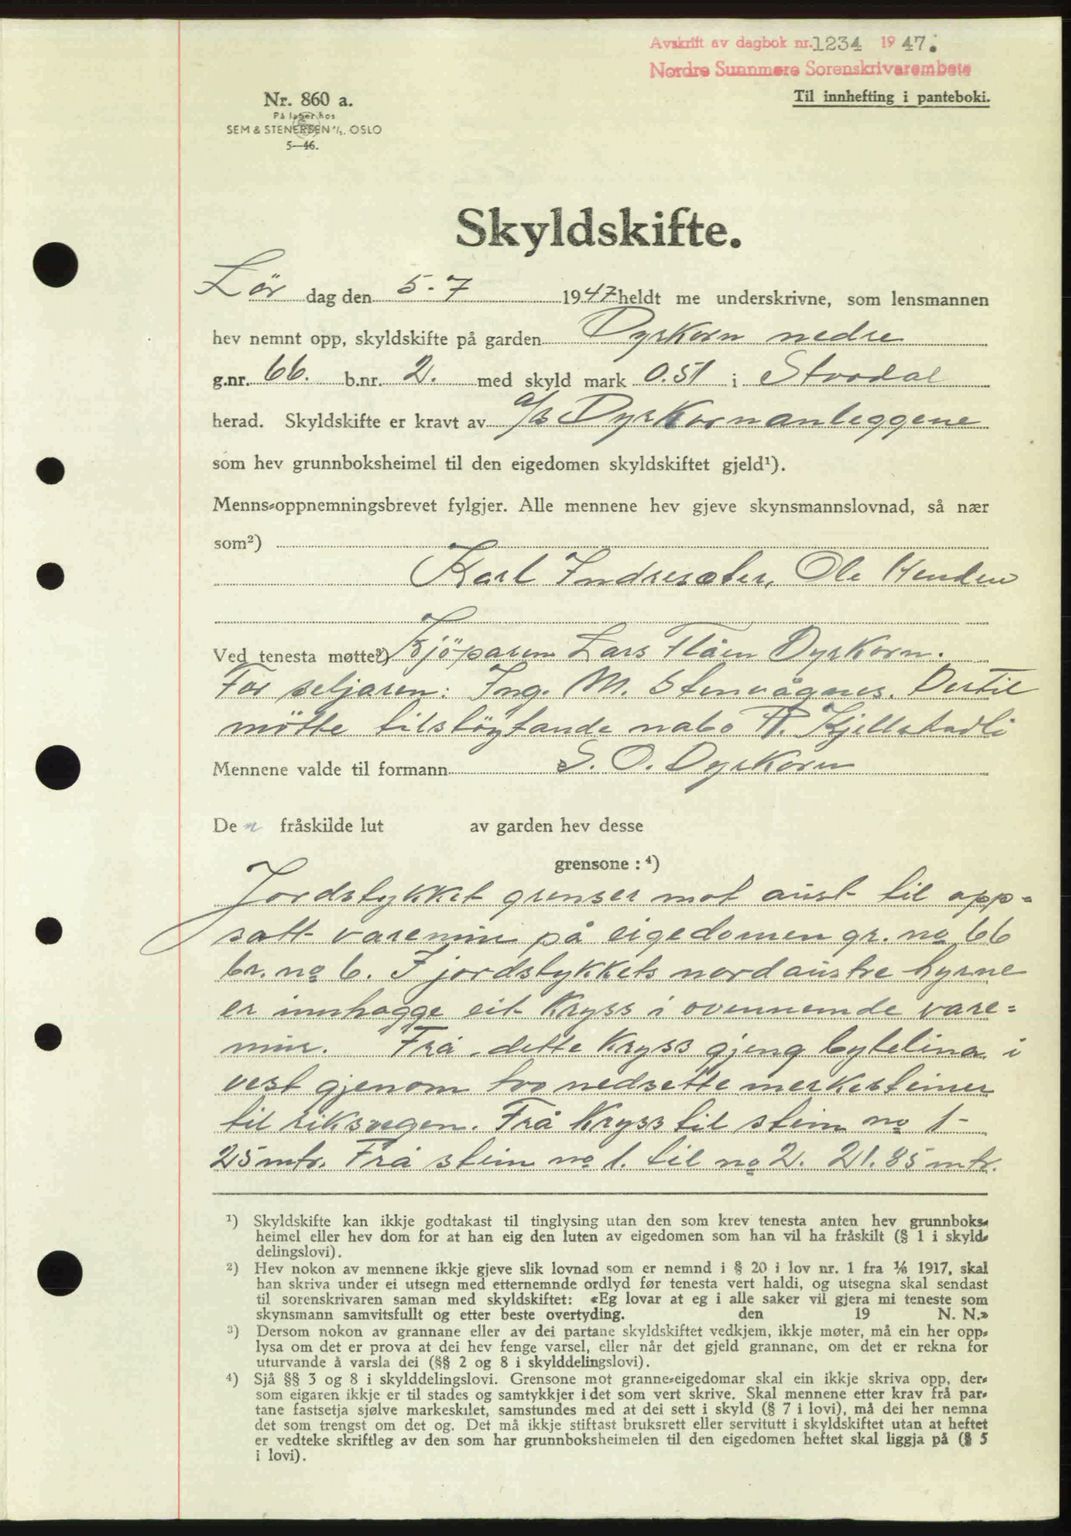 Avskrift av dagbok nr. 1234 1947.
Nordre Sunnmøre Sorenskrivarembete
Til innhefting i panteboki.
Nr. 860 a.
På lager hos
SEM & STENERSEN A/S. OSLO
5—46.
Skyldskifte.
Lør dag den 5-7 1947 heldt me underskrivne, som lensmannen
hev nemnt opp, skyldskifte på garden Dyrkorn nedre
g.nr. 66. b.nr. 2. med skyld mark 0.51 i Stordal
herad. Skyldskifte er kravt av a/s Dyrkornanleggene
som hev grunnboksheimel til den eigedomen skyldskiftet gjeld¹).
Menns-oppnemningsbrevet fylgjer. Alle mennene hev gjeve skynsmannslovnad, så nær
som²)
Karl Indresæter, Ole Henden
Ved tenesta møtte³) Kjöparen Lars Flåen Dyrkorn.
For seljaren: Ing. M. Stenvågnes. Dertil
mötte tilstöytande nabo P. Kjellstadli
Mennene valde til formann S. O. Dyrkorn
De n fråskilde lut av garden hev desse
grensone : ⁴)
Jordstykket grenser mot aust til opp=
satt varemin på eigedomen gr. no 66
br. no 6. I jordstykkets nordaustre hyrne
er innhogge eit kryss i ovennemde vare=
min. Frå dette kryss gjeng bytelina i
vest gjenom tvo nedsette merkesteiner
til riksvegen. Frå kryss til stein no 1-
25 mtr. Frå stein no 1. til no 2. 21.85 mtr.
¹) Skyldskifte kan ikkje godtakast til tinglysing utan den som krev tenesta anten hev grunnboks-
heimel eller hev dom for at han eig den luten av eigedomen som han vil ha fråskilt (§ 1 i skyld-
delingslovi).
²) Hev nokon av mennene ikkje gjeve slik lovnad som er nemnd i § 20 i lov nr. 1 fra 1/6 1917, skal
han skriva under ei utsegn med etternemnde ordlyd før tenesta vert haldi, og utsegna skal sendast
til sorenskrivaren saman med skyldskiftet: «Eg lovar at eg i alle saker vil gjera mi teneste som
skynsmann samvitsfullt og etter beste overtyding. den 19 N. N.»
³) Dersom nokon av grannane eller av dei partane skyldskiftet vedkjem, ikkje møter, må ein her opp-
lysa om det er prova at dei hev fenge varsel, eller når det gjeld grannane, om det er rekna for
uturvande å varsla dei (§§ 2 og 8 i skylddelingslovi).
⁴) Sjå §§ 3 og 8 i skylddelingslovi. Grensone mot granne-eigedomar skal ein ikkje skriva opp, der-
som eigaren ikkje er til stades og samtykkjer i det som vert skrive. Skal mennene etter krav frå par-
tane fastsetja sjølve markeskilet, samstundes med at dei sett i skyld (§ 7 i lovi), må dei her nemna
det som trengst om det og. Det må ikkje stiftast bruksrett eller servitutt i skyldskiftet utan at heftet
er vedteke skriftleg av den som har grunnboksheimelen til den eigedomen heftet skal liggja på (§ 5
i lovi).